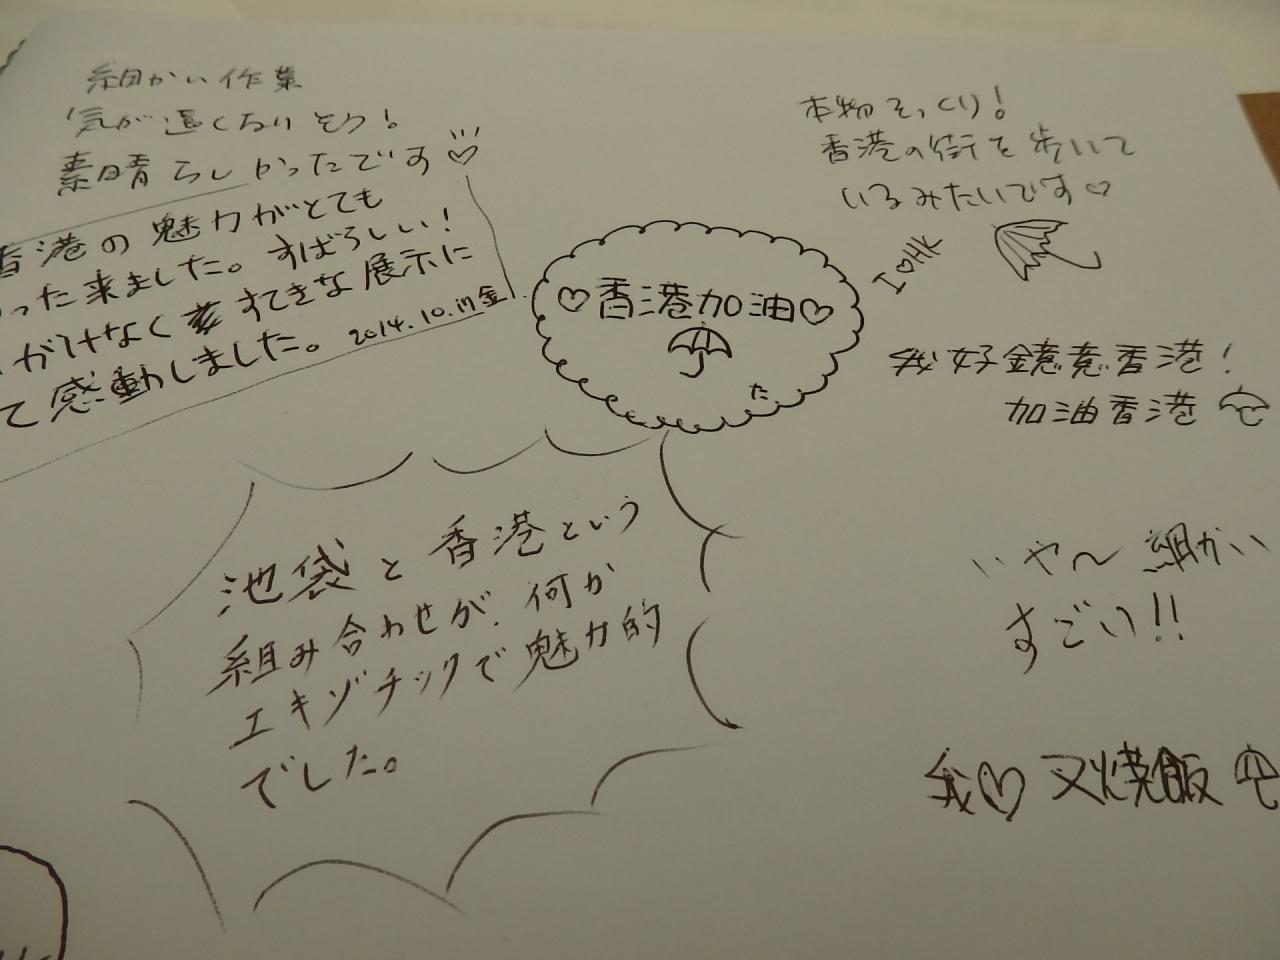 細かい作業
気が遠くなりそう!
素晴らしかったです♡
香港の魅力がとても
った来ました。すばらしい!
がけなく すてきな展示に
て感動しました。 2014.10.17 金
♡香港加油♡
た
本物そっくり!
香港の街を歩いて
いるみたいです♡
I♡HK
我好鐘意香港!
加油香港
池袋と香港という
組み合わせが、何か
エキゾチックで魅力的
でした。
いや〜細かい
すごい!!
我♡叉燒飯